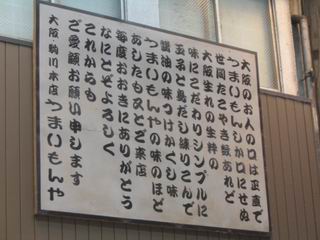 大阪のお人の口は正直で
うまいもんしか口にせぬ
世間たこやき数あれど
大阪生れの生粋の
味にこだわりシンプルに
玉子と鳥だし練りこんで
醤油の味つけかくし味
うまいもんやの味のほど
あしたも又とご来店
毎度おおきにありがとう
なにとぞよろしく
これからも
ご愛顧お願い申します
大阪・駒川本店 うまいもんや